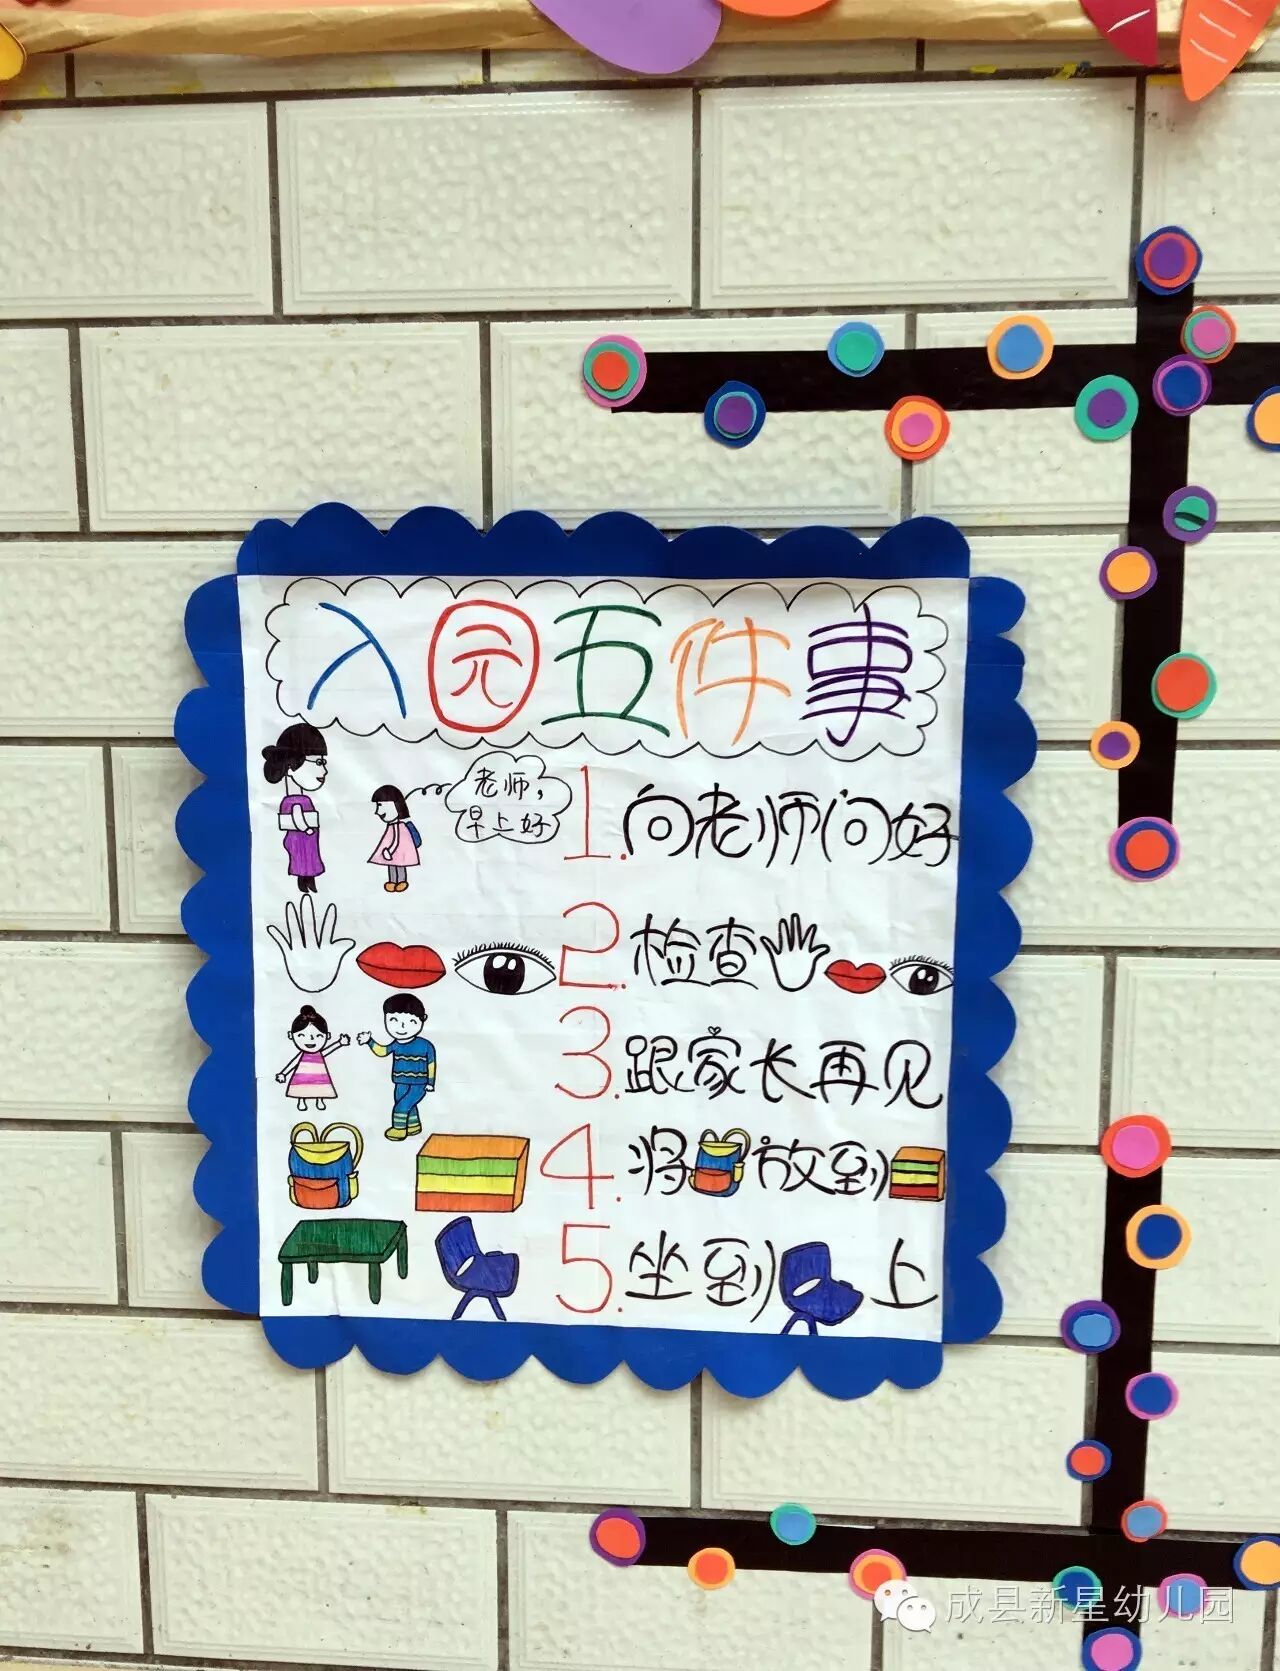 入园五件事
老师，
早上好
1.向老师问好
2.检查
3.跟家长再见
4.将放到
5.坐到上
成县新星幼儿园